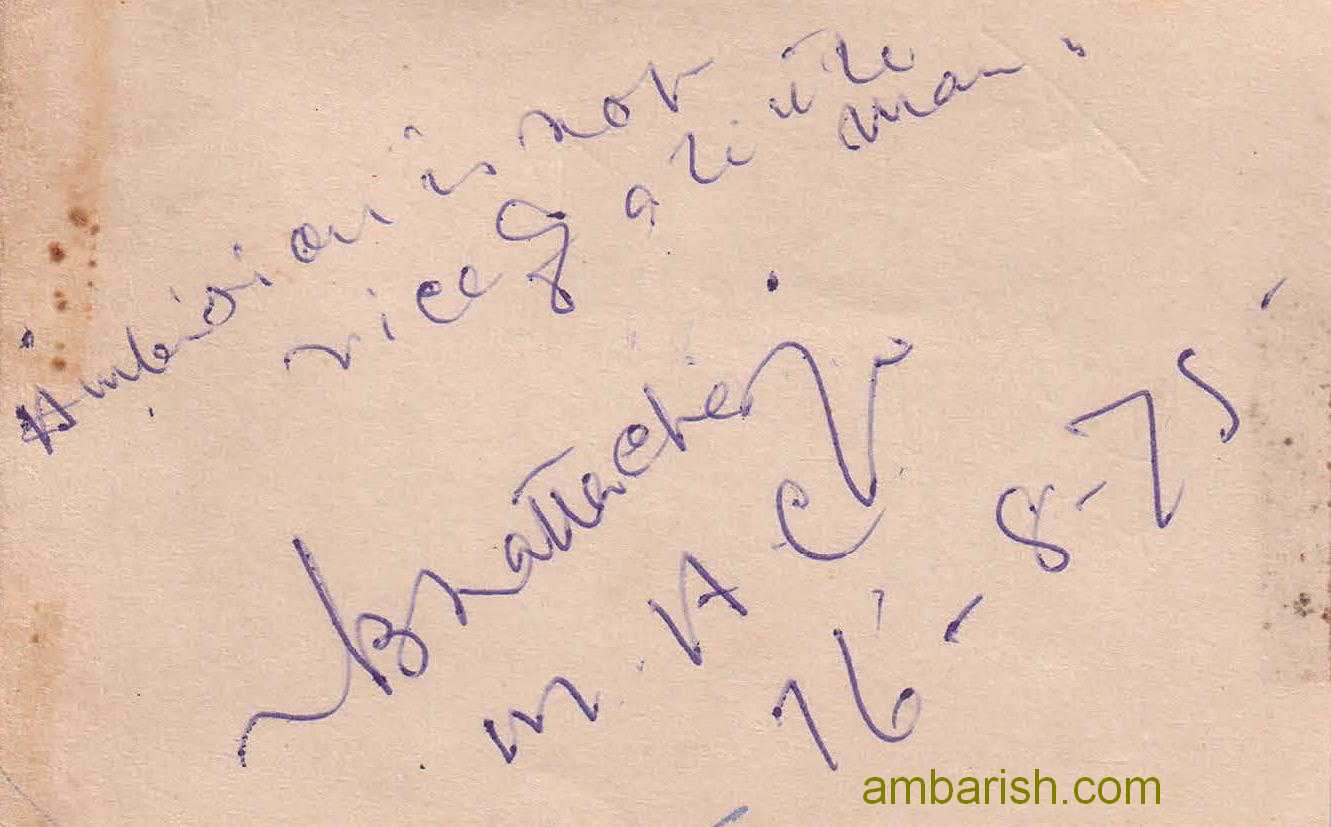 "Ambition is not
vice of a little
man"
Bhattacherje
M.A.C.
16-8-75
ambarish.com